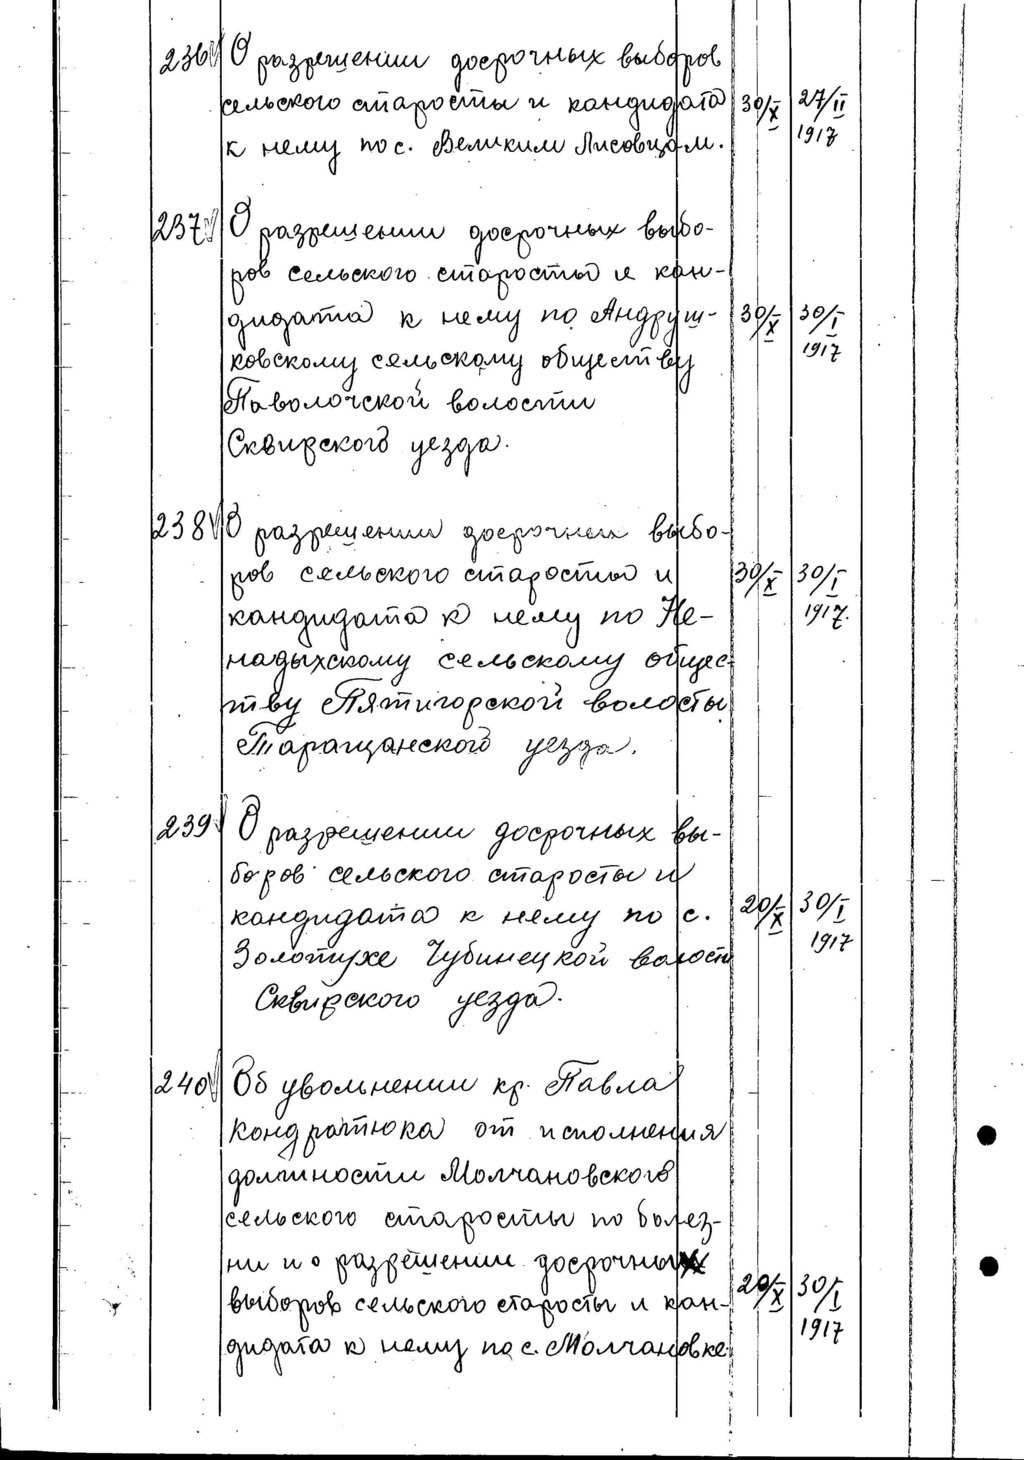 236 О разрешении досрочных выборов
сельского старосты и кандидата 30/X 27/II
к нему по с. Великим Лисовцам. 1917
237 О разрешении досрочных выбо-
ров сельского старосты и кан-
дидата к нему по Андруш- 30/X 30/I
ковскому сельскому обществу 1917
Паволочской волости
Сквирского уезда.
238 О разрешении досрочных выбо-
ров сельского старосты и 30/X 30/I
кандидата к нему по Не- 1917.
надыхскому сельскому общес-
тву Пятигорской волосты
Таращанского уезда.
239 О разрешении досрочных вы-
боров сельского старосты и
кандидата к нему по с. 20/X 30/I
Золотухе Чубинецкой волости 1917
Сквирского уезда.
240 Об увольнении кр. Павла
Кондратюка от исполнения
должности Молчановского
сельского старосты по болез-
ни и о разрешении досрочных
выборов сельского старосты и кан- 20/X 30/I
дидата к нему по с. Молчановке 1917